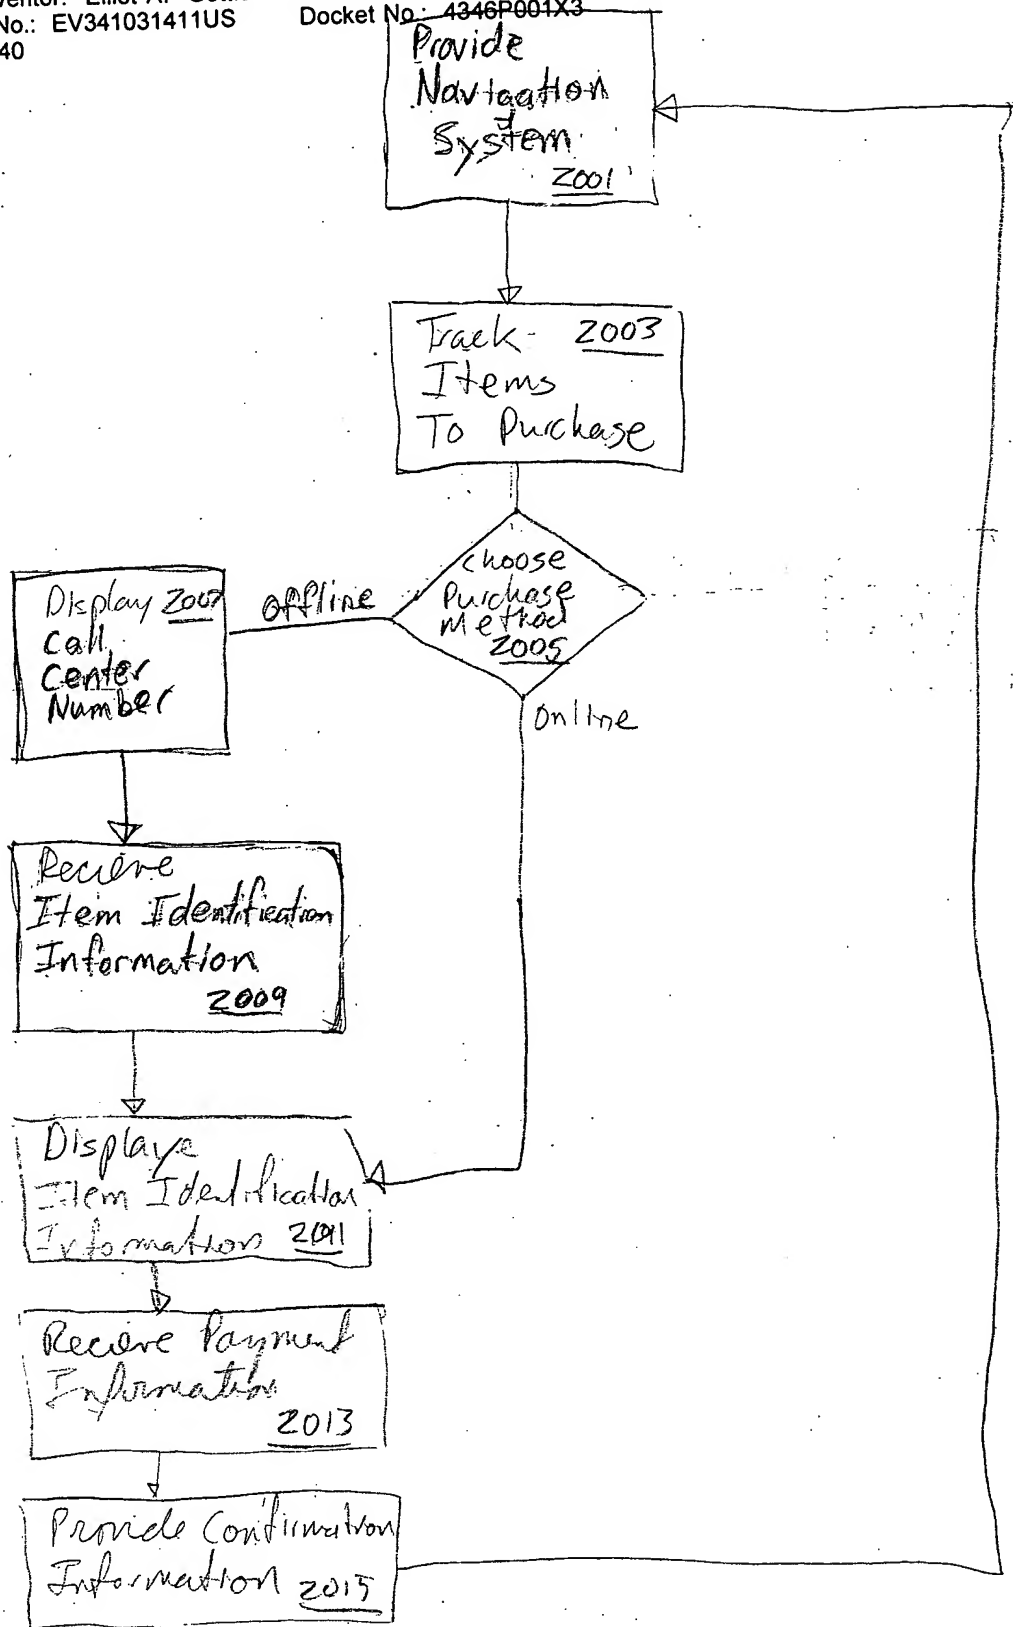 No.: EV341031411US Docket No.: 4346P001X3
40
Provide
Navigation
System
2001
Track 2003
Items
To Purchase
Choose
Purchase
Method
2005
Offline
Online
Display 2007
Call
Center
Number
Recieve
Item Identification
Information
2009
Displaye
Item Identification
Information 2011
Recieve Payment
Information
2013
Provide Confirmation
Information 2015